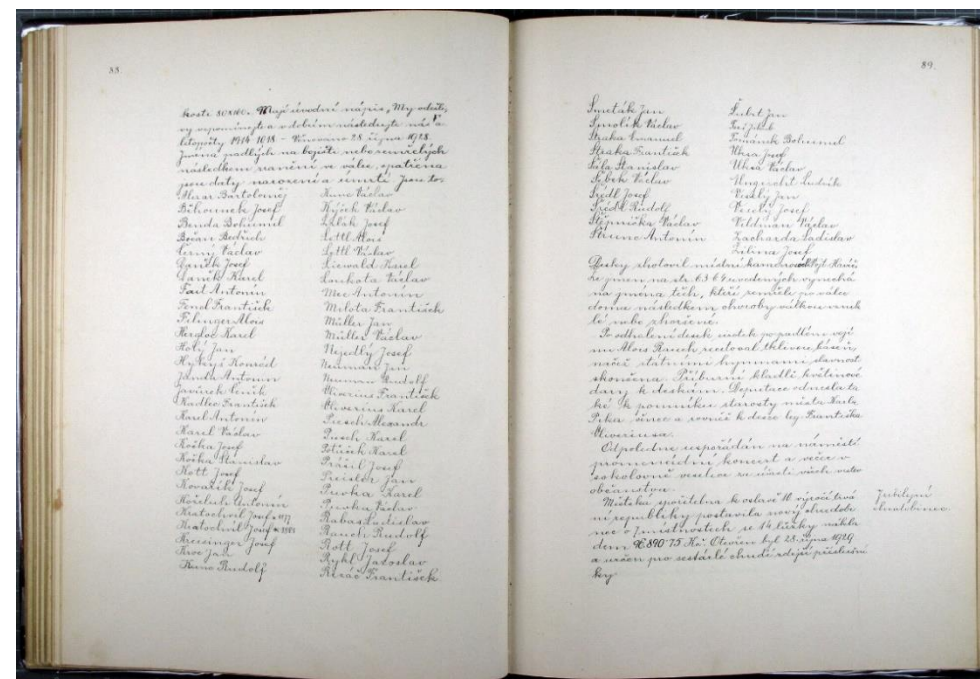 88.
kosti 80x160. Mají úvodní nápis „My odešli,
vy vzpomínejte a v dobrém následujte nás" a
letopočty 1914-1918 - Věnováno 28. října 1928.
Jména padlých na bojišti nebo zemřelých
následkem zranění ve válce, opatřena
jsou daty narození a úmrtí. Jsou to:
Bartoloměj
Běhounek Josef
Benda Bohumil
Bočan Bedřich
Černý Václav
Daněk Josef
Daněk Karel
Fait Antonín
Fencl František
Filinger Alois
Hergloc Karel
Holý Jan
Konrád
Janda Antonín
Javůrek Čeněk
Kadlec František
Karel Antonín
Karel Václav
Kočka Josef
Kočka Stanislav
Kott Josef
Kovařík Josef
Antonín
Kratochvil Josef
Kratochvil Josef
Josef
Kroc Jan
Kuna Rudolf
Kunc Václav
Václav
Josef
Lettl Alois
Lettl Václav
Liewald Karel
Loukota Václav
Mec Antonín
Milota František
Müller Jan
Müller Václav
Nejedlý Josef
Neuman Jan
Neuman Rudolf
Oliverius František
Oliverius Karel
Piesch Alexandr
Karel
Polívk Karel
Prášil Josef
Preisler Jan
Prwka Karel
Prwka Václav
Rabas Ladislav
Rauch Rudolf
Rott Josef
Rykl Jaroslav
František
89.
Smeták Jan
Smolík Václav
Straka Emanuel
Straka František
Šála Stanislav
Šebek Václav
Šeidl Josef
Šeidl Rudolf
Štěpnička Václav
Strunc Antonín
Jan
Tománek Bohumil
Uhra Josef
Uhra Václav
Ungrodit Ludvík
Veselý Jan
Veselý Josef
Vildman Václav
Zacharda Ladislav
Žilina Josef
Desky zhotovil místní kamenosochař Vojt.
Ze jmen na str. 63-64 uvedených vynechá
na jména těch, kteří zemřeli po válce
doma následkem choroby válkou vznik
lé nebo zhoršené.
Po odhalení desek matek po padlém voji
nu Alois Rusch recitoval Thlerovu báseň,
načež státními hymnami slavnost
skončena. Příbuzní kladli květinové
dary k deskám. Deputace odnesla ta
ké k pomníku starosty města Karla
Pika věnec a rovněž k desce leg. Františka
Oliveriusa.
Odpoledne uspořádán na náměstí
promenádní koncert a večer v
sokolovně veselice za účasti všech vrstev
občanstva.
Městská spořitelna k oslavě 10. výročí trvá
ní republiky postavila nový chudobi
nec o 7 místnostech se 14 lůžky nákla
dem 890.75 Kč. Otevřen byl 28. října 1929
a určen pro sestárlé chudé zdejší příslušní
ky.
Jubilejní
chudobinec